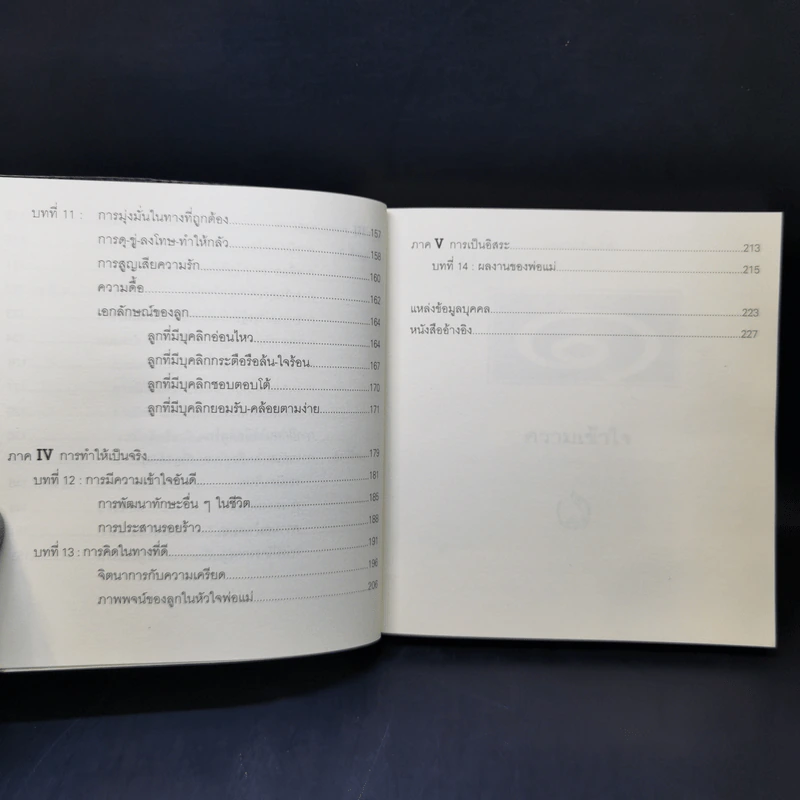 บทที่ 11 : การมุ่งมั่นในทางที่ถูกต้อง 157
การดุ-ขู่-ลงโทษ-ทำให้กลัว 158
การสูญเสียความรัก 160
ความดื้อ 162
เอกลักษณ์ของลูก 164
ลูกที่มีบุคลิกอ่อนไหว 164
ลูกที่มีบุคลิกกระตือรือล้น-ใจร้อน 167
ลูกที่มีบุคลิกชอบตอบโต้ 170
ลูกที่มีบุคลิกยอมรับ-คล้อยตามง่าย 171
ภาค IV การทำให้เป็นจริง 179
บทที่ 12 : การมีความเข้าใจอันดี 181
การพัฒนาทักษะอื่น ๆ ในชีวิต 185
การประสานรอยร้าว 188
บทที่ 13 : การคิดในทางที่ดี 191
จิตนาการกับความเครียด 196
ภาพพจน์ของลูกในหัวใจพ่อแม่ 206
ภาค V การเป็นอิสระ 213
บทที่ 14 : ผลงานของพ่อแม่ 215
แหล่งข้อมูลบุคคล 223
หนังสืออ้างอิง 227